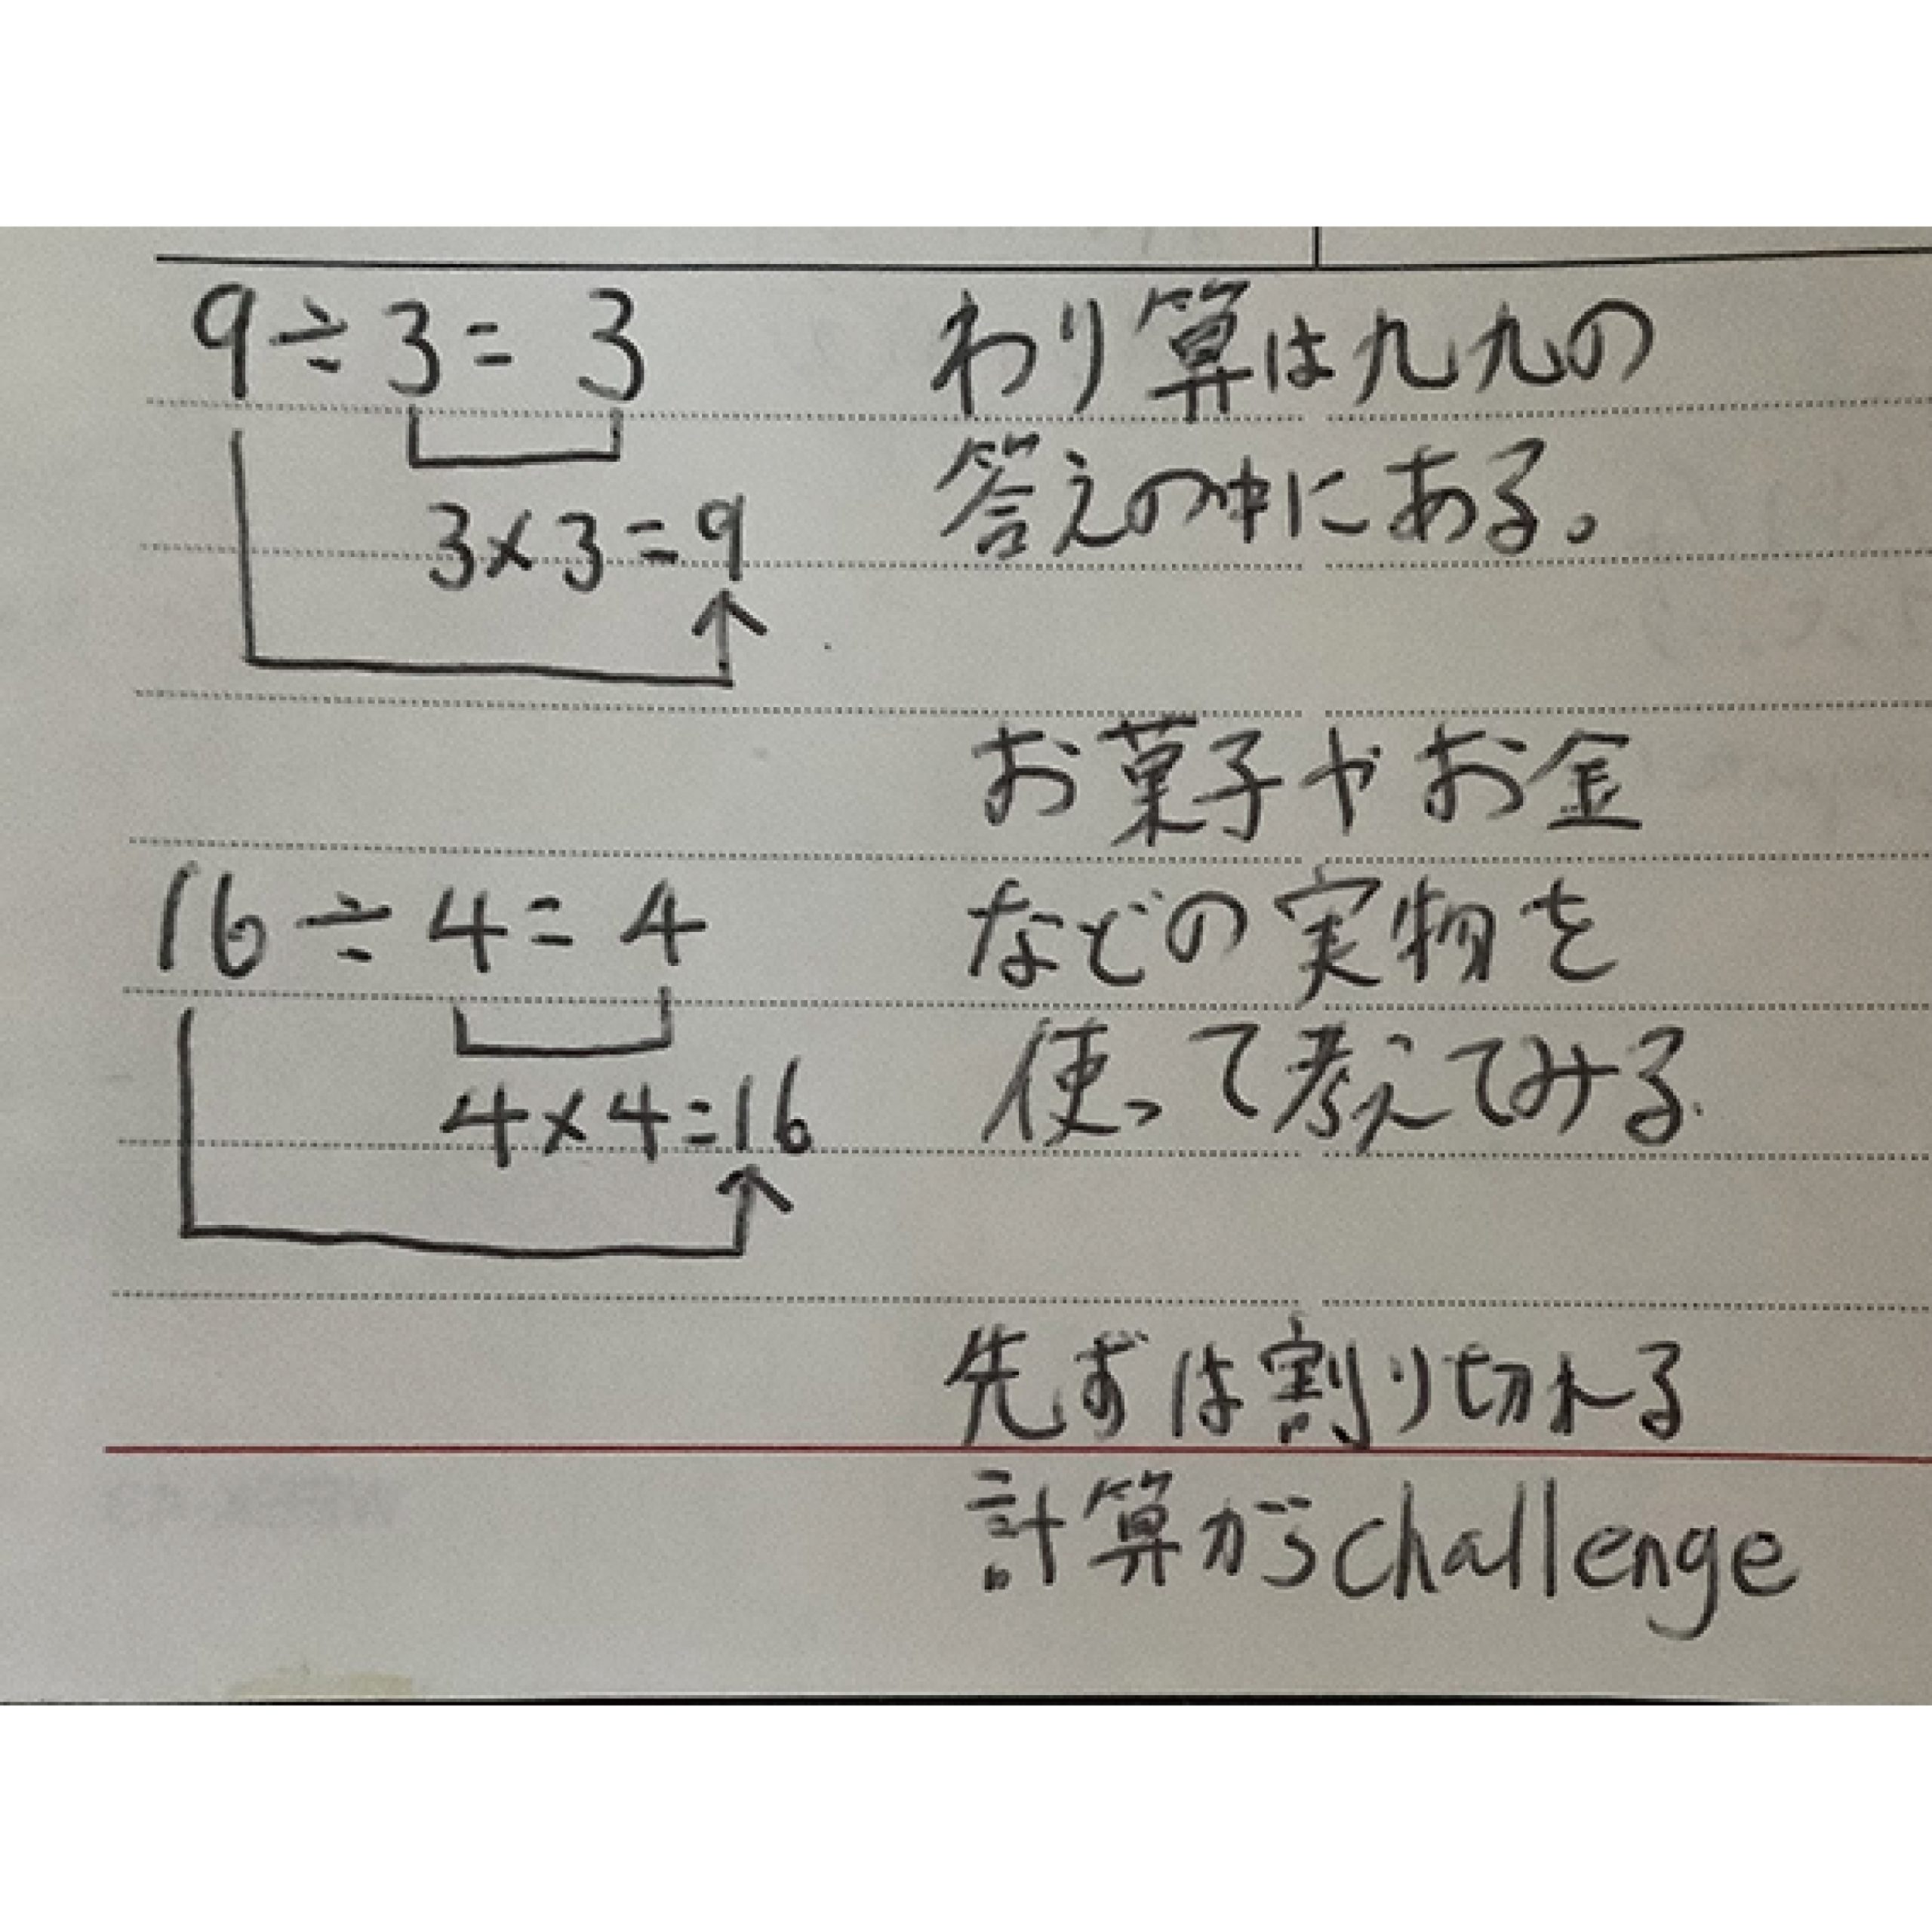 9÷3=3
3×3=9
16÷4=4
4×4=16
わり算は九九の
答えの中にある。
お菓子やお金
などの実物を
使って考えてみる.
先ずは割り切れる
計算がらchallenge